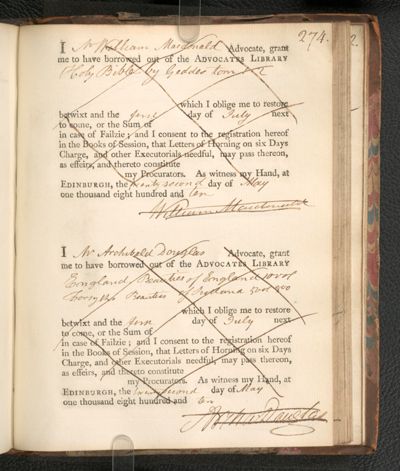 274.
I Mr William Macdonald Advocate, grant
me to have borrowed out of the ADVOCATES LIBRARY
Holy Bible by Geddes tom
which I oblige me to restore
betwixt and the first day of July next
to come, or the Sum of
in case of Failzie; and I consent to the registration hereof
in the Books of Session, that Letters of Horning on six Days
Charge, and other Executorials needful, may pass thereon,
as effeirs, and thereto constitute
my Procurators. As witness my Hand, at
EDINBURGH, the twenty second day of May
one thousand eight hundred and ten
William Macdonald
I Mr Archibald Douglas Advocate, grant
me to have borrowed out of the ADVOCATES LIBRARY
England Beauties of England 10 vol
Forsyths Beauties of Scotland 5 vol
which I oblige me to restore
betwixt and the first day of July next
to come, or the Sum of
in case of Failzie; and I consent to the registration hereof
in the Books of Session, that Letters of Horning on six Days
Charge, and other Executorials needful, may pass thereon,
as effeirs, and thereto constitute
my Procurators. As witness my Hand, at
EDINBURGH, the twenty second day of May
one thousand eight hundred and ten
Douglas
2.